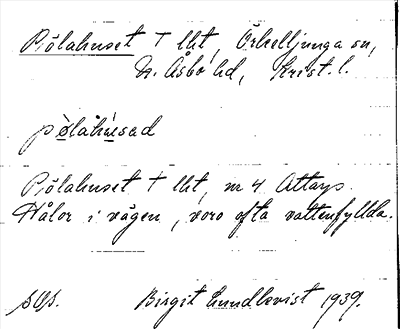 Pölahuset † lht, Örkelljunga sn,
N. Åsbo hd, Krist. l.
pø̀låhu̇̀sad
Pölahuset † lht, nr 4 Attarp.
Hålor i vägen, voro ofta vattenfyllda.
sOs. Birgit Lundkvist 1939.